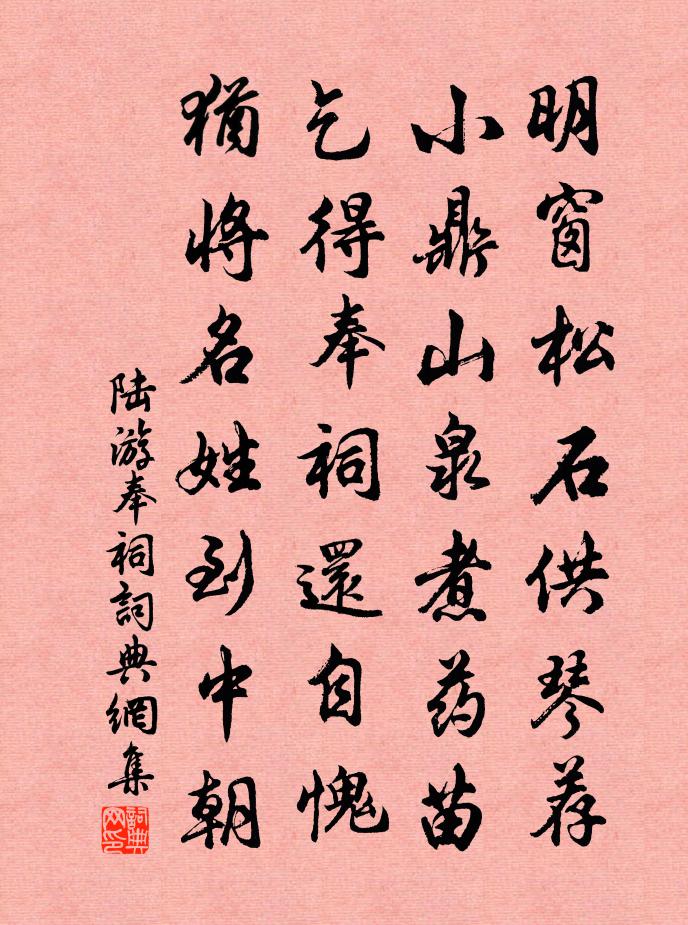 明窗松石供琴荐
小鼎山泉煮药苗
乞得奉祠還自愧
猶將名姓到中朝
陆游奉祠詞典網集
詞典网印